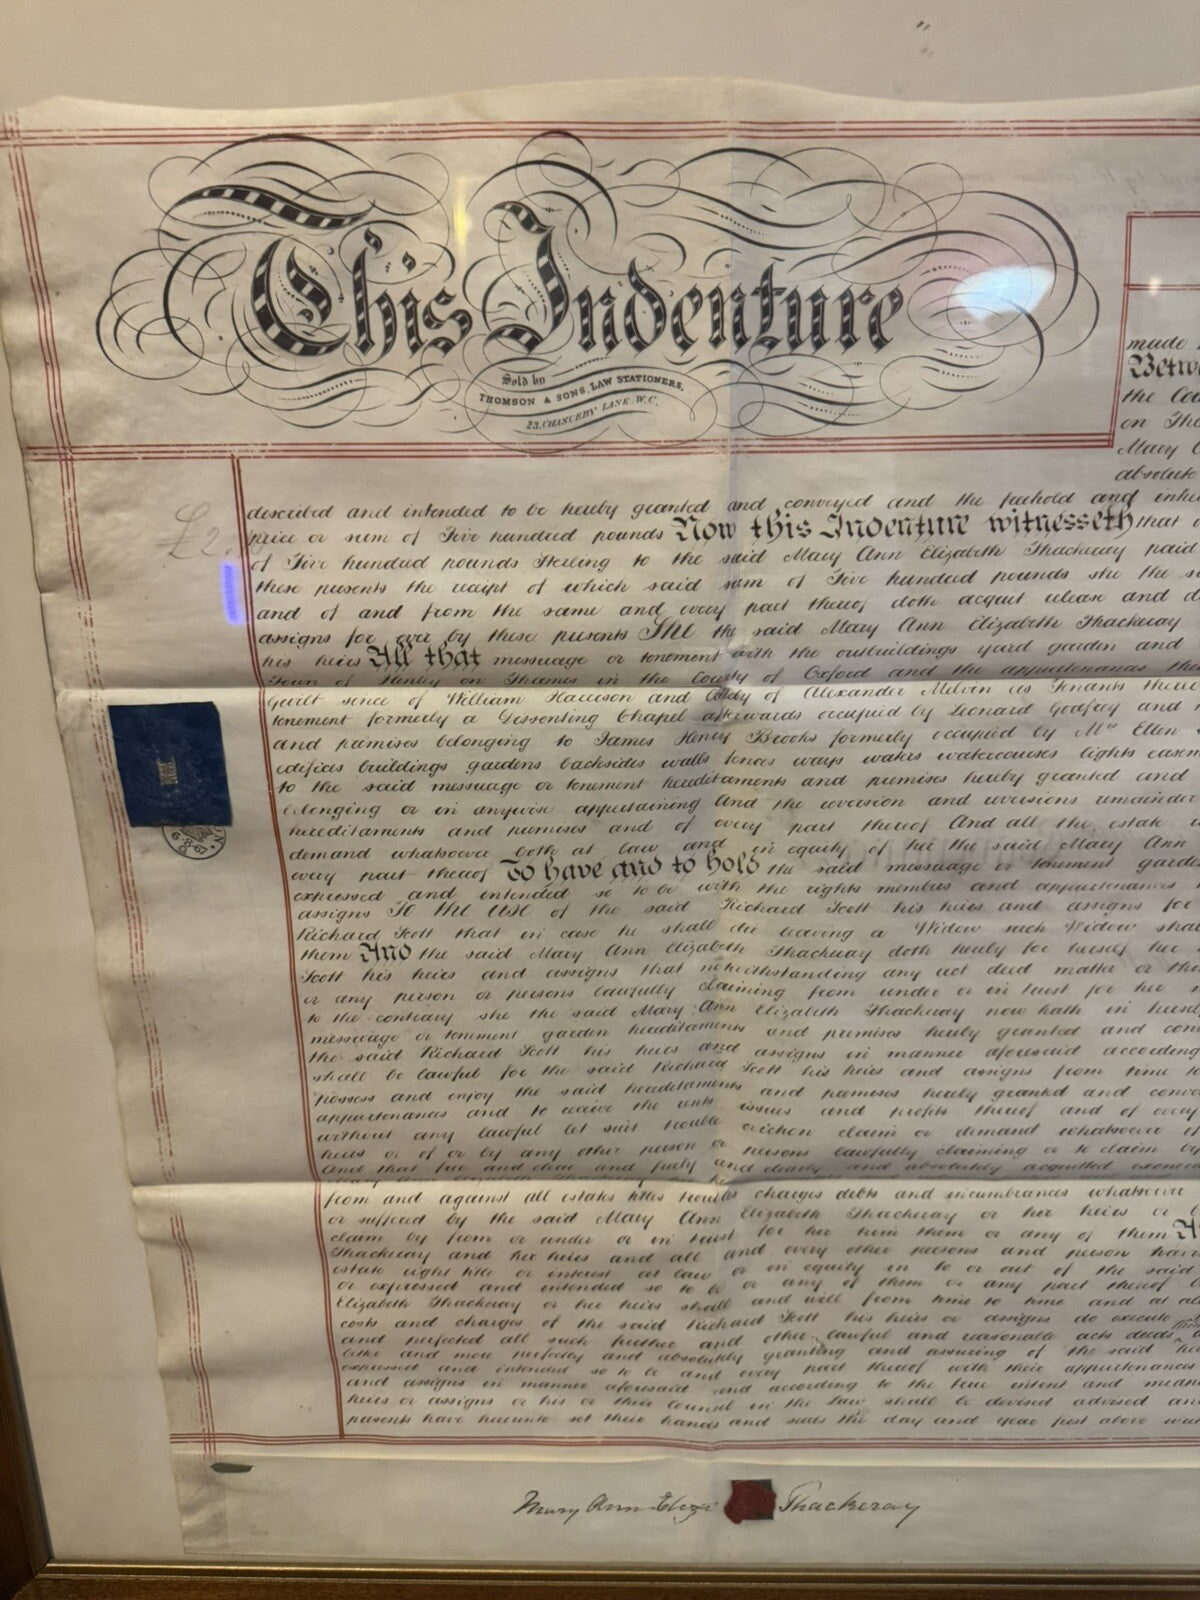 This Indenture
Sold by
THOMSON & SONS, LAW STATIONERS,
23, CHANCERY LANE, W.C.
made
Betw
the Cou
on Tha
Mary
absolute
£2.
described and intended to be hereby granted and conveyed and the freehold and inhe
price or sum of Five hundred pounds Now this Indenture witnesseth that
of Five hundred pounds Sterling to the said Mary Ann Elizabeth Thackeray paid
these presents the receipt of which said sum of Five hundred pounds she the s
and of and from the same and every part thereof doth acquit release and d
assigns for ever by these presents She the said Mary Ann Elizabeth Thackeray
his heirs All that messuage or tenement with the outbuildings yard garden and
Town of Henley on Thames in the County of Oxford and the appurtenances the
since of William Harrison and of Alexander Melvin as Tenants there
tenement formerly a Dissenting Chapel afterwards occupied by Leonard Godfrey and
and premises belonging to James Henry Brooks formerly occupied by Mrs Ellen
edifices buildings gardens backsides walls fences ways waters watercourses lights easem
to the said messuage or tenement hereditaments and premises hereby granted and
belonging or in anywise appertaining And the reversion and reversions remainder
hereditaments and premises and of every part thereof And all the estate
demand whatsoever both at law and in equity of her the said Mary Ann
every part thereof To have and to hold the said messuage or tenement garden
expressed and intended so to be with the rights members and appurtenances
assigns To the use of the said Richard Scott his heirs and assigns for
Richard Scott that in case he shall die leaving a Widow such Widow sha
them And the said Mary Ann Elizabeth Thackeray doth hereby for herself her
Scott his heirs and assigns that notwithstanding any act deed matter or th
or any person or persons lawfully claiming from under or in trust for her
to the contrary she the said Mary Ann Elizabeth Thackeray now hath in hersel
messuage or tenement garden hereditaments and premises hereby granted and con
the said Richard Scott his heirs and assigns in manner aforesaid according
shall be lawful for the said Richard Scott his heirs and assigns from time to
possess and enjoy the said hereditaments and premises hereby granted and conv
appurtenances and to receive the rents issues and profits thereof and of every
without any lawful let suit trouble eviction claim or demand whatsoever of
heirs or of or by any other person or persons lawfully claiming or to claim by
And that free and clear and freely and clearly and absolutely acquitted exone
from and against all estates titles troubles charges debts and incumbrances whatsoever
or suffered by the said Mary Ann Elizabeth Thackeray or her heirs or
claim by from or under or in trust for her him them or any of them
Thackeray and her heirs and all and every other persons and person hav
estate right title or interest at law or in equity in to or out of the said
or expressed and intended so to be or any of them or any part thereof
Elizabeth Thackeray or her heirs shall and will from time to time and at al
costs and charges of the said Richard Scott his heirs or assigns do execute
and perfected all such further and other lawful and reasonable acts deeds
better and more perfectly and absolutely granting and assuring of the said he
expressed and intended so to be and every part thereof with their appurtenances
and assigns in manner aforesaid and according to the true intent and mean
heirs or assigns or his or their Counsel in the Law shall be devised advised an
presents have hereunto set their hands and seals the day and year first above wri
Mary Ann Eliza Thackeray